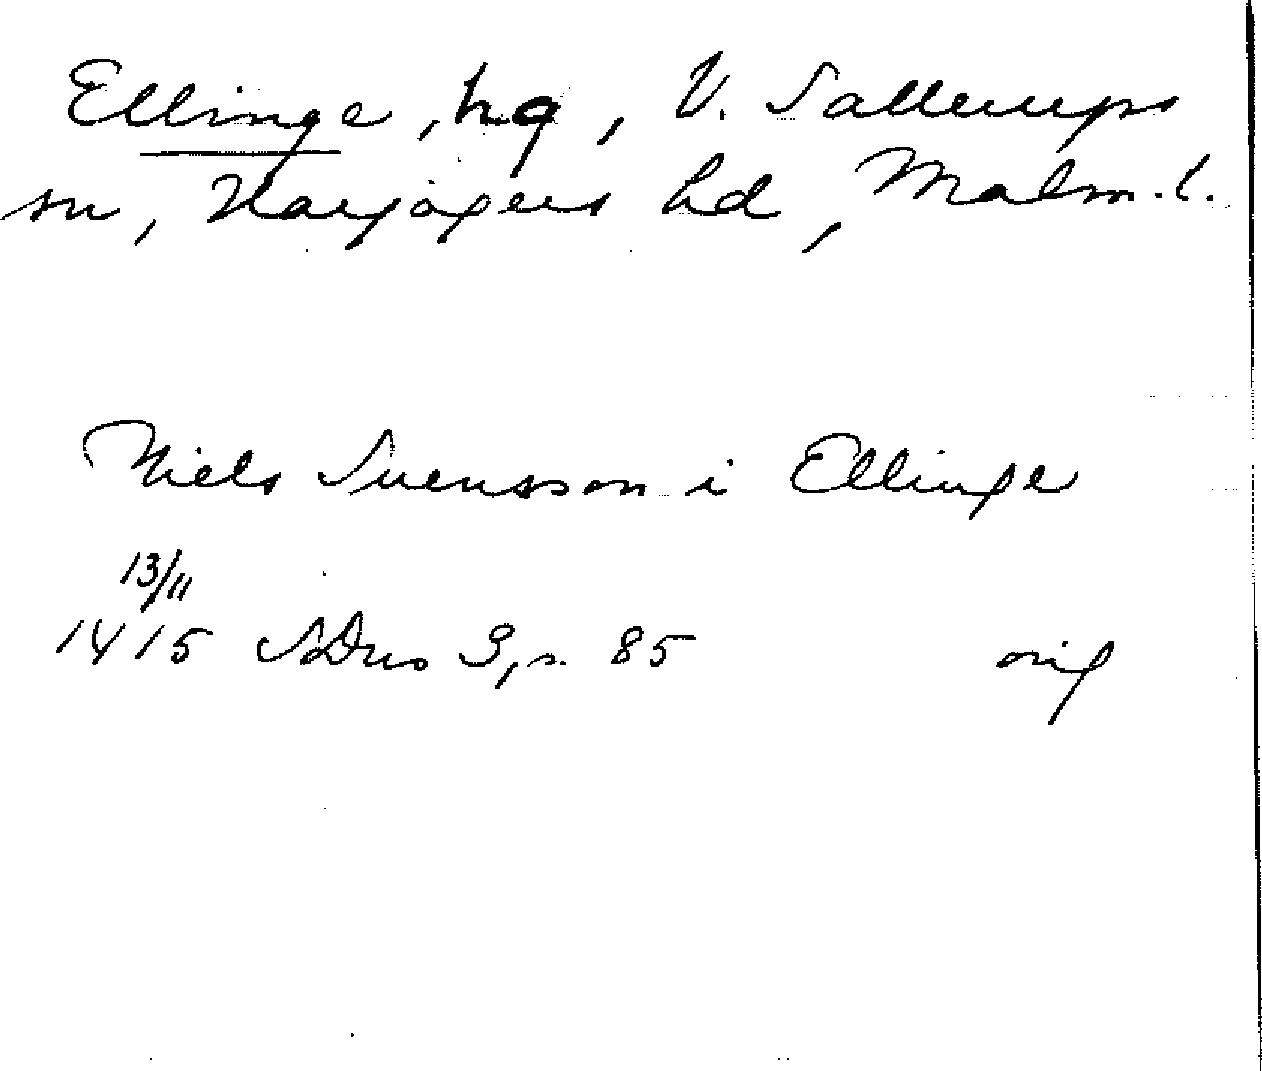 Ellinge, hg, V. Sallerups
sn, Harjagers hd, Malm. l.
Niels Svensson i Ellinge
13/11
1415 SDns 3, s. 85 orig